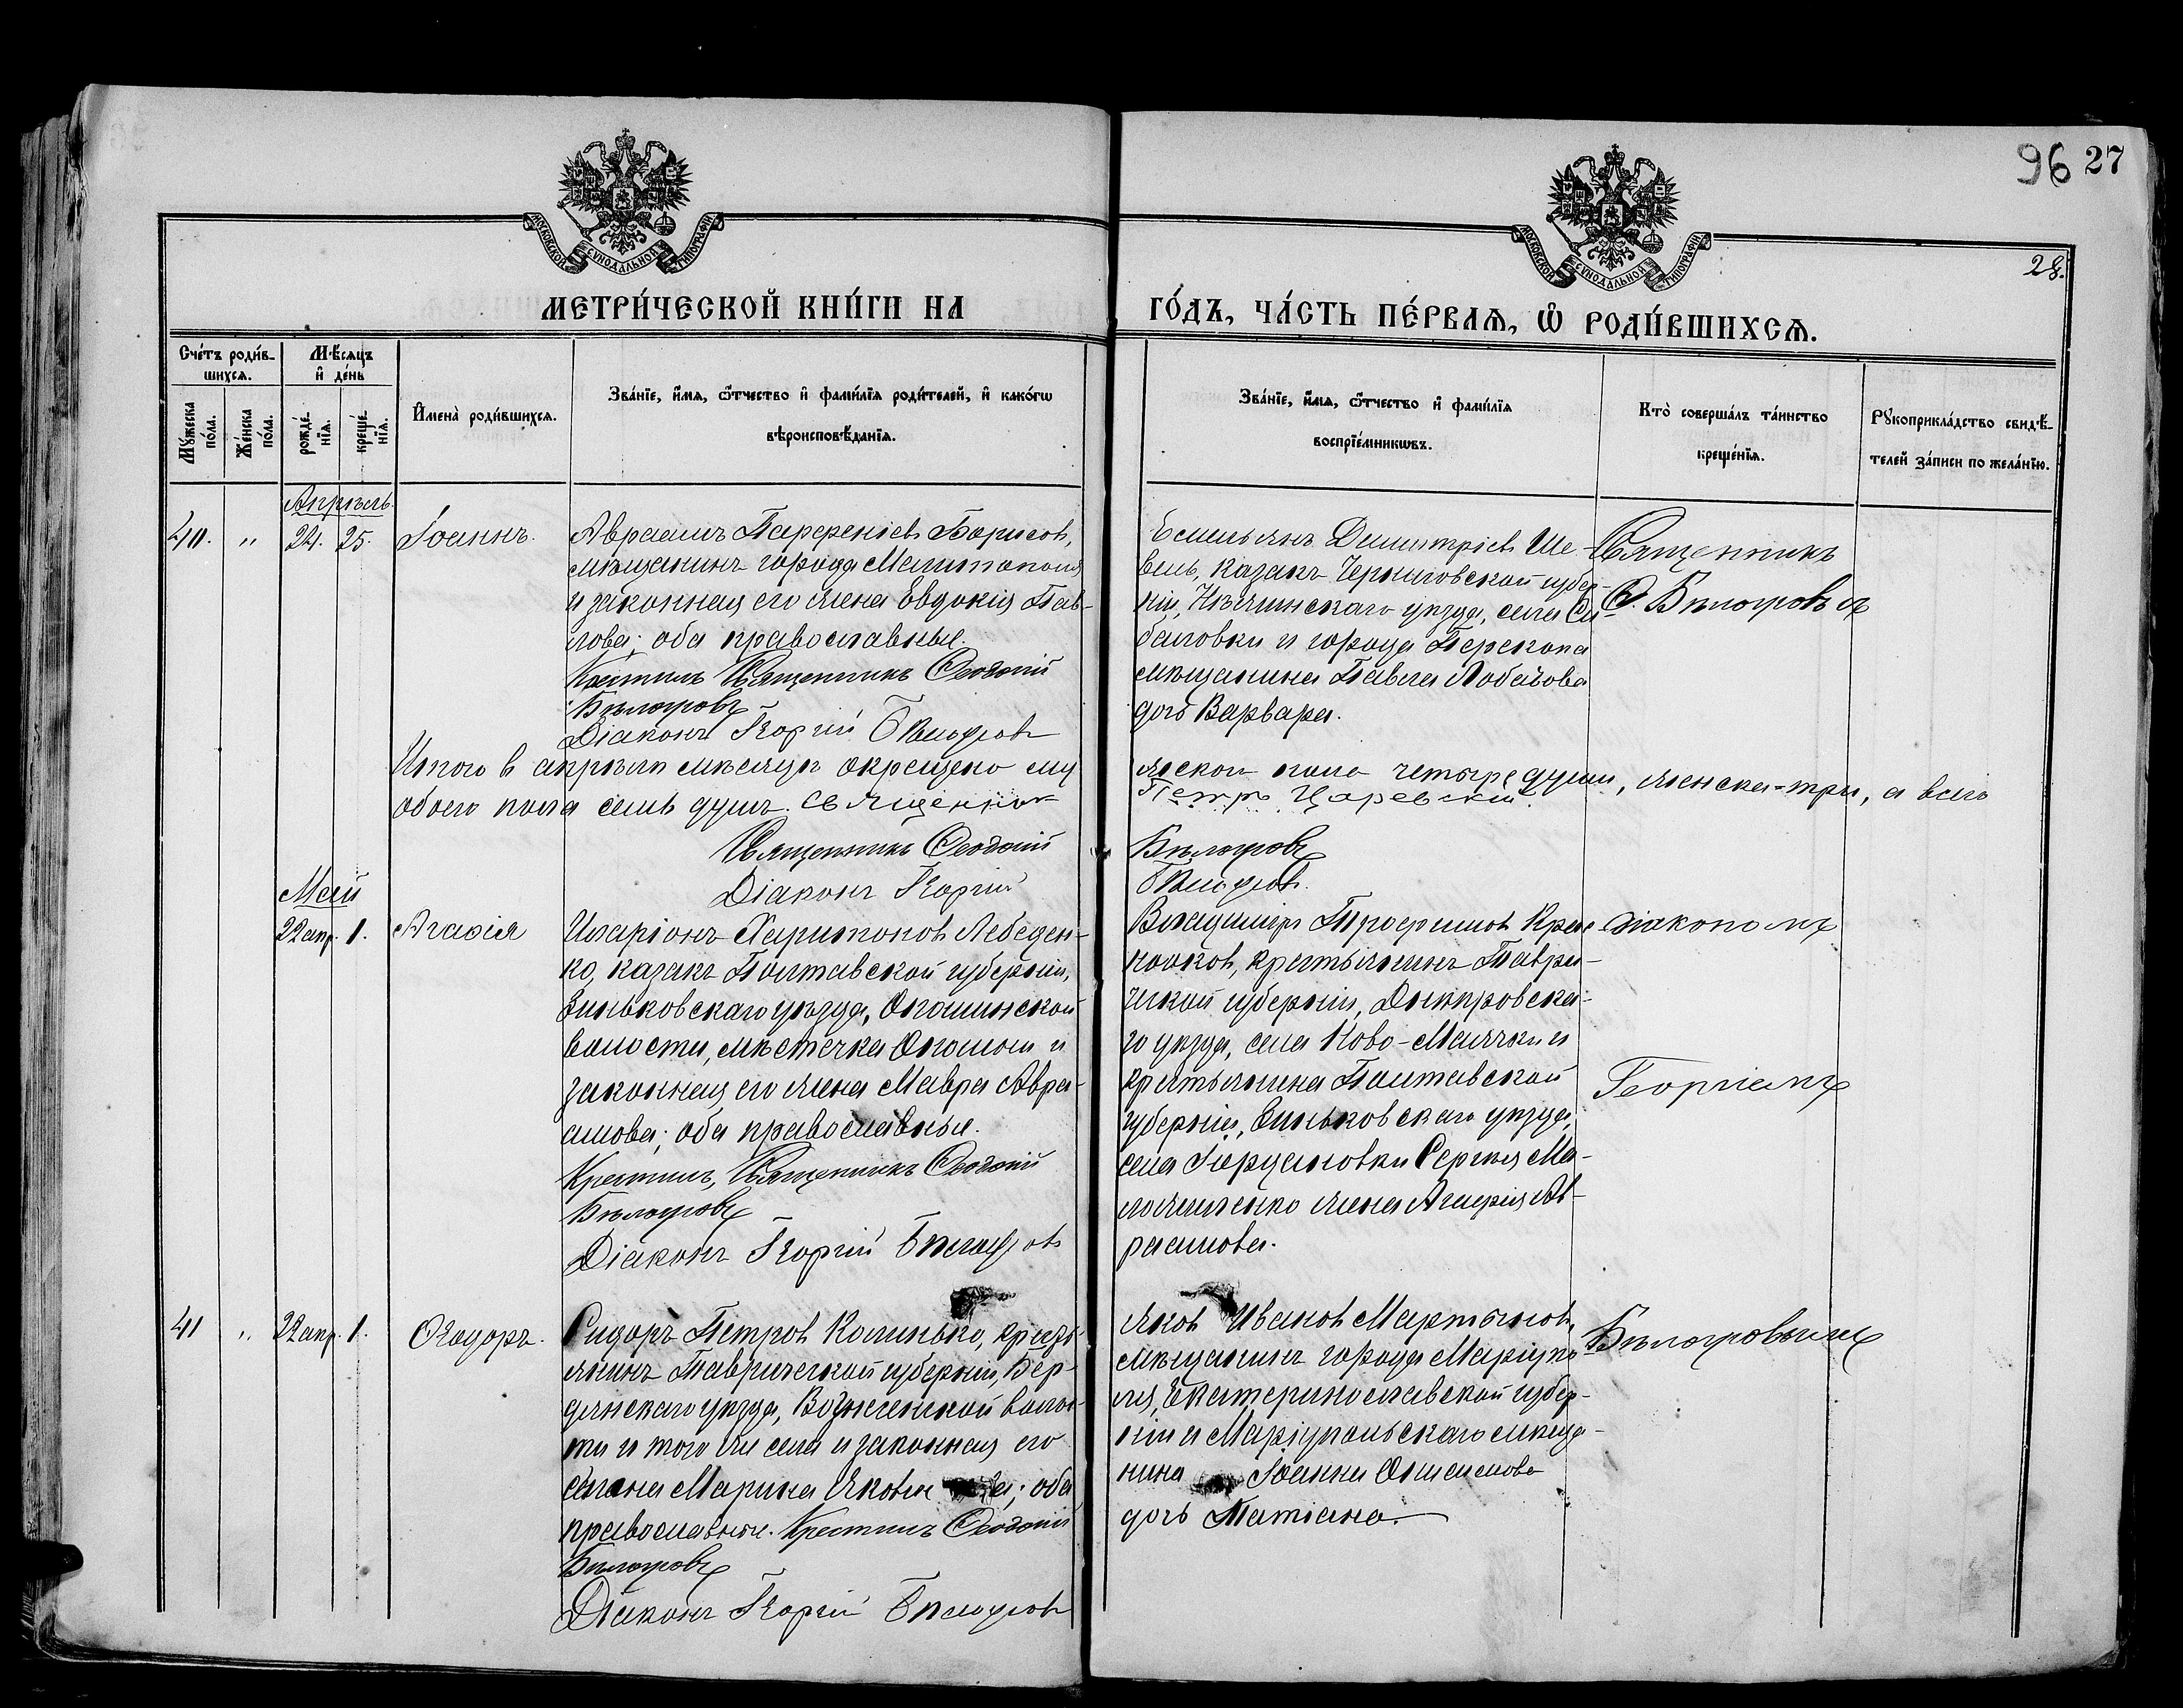 96 27
28.
МОСКОВСКОЙ СѴНОДАЛЬНОЙ ТИПОГРАФІИ
МОСКОВСКОЙ СѴНОДАЛЬНОЙ ТИПОГРАФІИ
МЕТРИ́ЧЕСКОЙ КНИ́ГИ НА ГО́ДЪ, ЧА́СТЬ ПЕ́РВАЯ, Ѡ҆ РОДИ́ВШИХСЯ.
Сче́тъ роди́в-
шихся.
Мꙋ́жеска по́ла.
Же́нска по́ла.
Мѣ́сяцъ и҆ де́нь
рожде́нїя.
креще́нїя.
И҆мена̀ роди́вшихся.
Зва́нїе, и҆́мя, ѻ҆́тчество и҆ фами́лїя роди́телей, и҆ како́гѡ
вѣроисповѣ́данїя.
Зва́нїе, и҆́мя, ѻ҆́тчество и҆ фами́лїя
воспрїе́мникѡвъ.
Кто̀ соверша́лъ та́инство
креще́нїя.
Рꙋкоприкла́дство свидѣ́-
телей за́писи по жела́нїю.
Апрѣль
40. " 24. 25. Іоаннъ.
Авраамъ Парфеніевъ Борисовъ,
мѣщанинъ города Мелитополя
и законная его жена Евдокія Пав-
лова; оба православные.
Крестилъ Священникъ Ѳеодосій
Бѣлогровъ
Діаконъ Георгій Бѣлогровъ
Емельянъ Димитріевъ Ше-
вель, казакъ Черниговской губер-
ніи, Нѣжинскаго уѣзда, села
баловки и города Перекопа
мѣщанина Павла Лобачова
дочь Варвара.
Священникъ
Ѳ. Бѣлогровъ
Итого въ апрѣлѣ мѣсяцѣ окрещено му жеской пола четыре души, женска - три, а всего
обоего пола семь душъ. Священникъ Петръ Царевскій.
Священникъ Ѳеодосій Бѣлогровъ
Діаконъ Георгій Бѣлогровъ.
Май
22 апр. 1. Агафія
Иларіонъ Харитоновъ Лебеден-
ко, казакъ Полтавской губерніи,
Зиньковскаго уѣзда, Опошнской
волости, мѣстечка Опошни и
законная его жена Мавра Авра-
амова; оба православные.
Крестилъ, Священникъ Ѳеодосій
Бѣлогровъ
Діаконъ Георгій Бѣлогровъ
Владиміръ Трофимовъ
крестьянинъ Таври-
ческой губерніи, Днѣпровска-
го уѣзда, села Ново-Маячки и
крестьянина Полтавской
губерніи, Зиньковскаго уѣзда,
села Сергѣя Ма-
жена Ав-
раамова.
діакономъ
Георгіемъ
41 " 22 апр. 1. Ѳеодоръ.
Сидоръ Петровъ Калинько, кресть-
янинъ Таврической губерніи, Бер-
дянскаго уѣзда, волос-
ти и того же села и законная его
жена Марина оба
православные. Крестилъ Ѳеодосій
Бѣлогровъ
Діаконъ Георгій Бѣлогровъ
Яковъ Ивановъ Мартыновъ,
мѣщанинъ города Маріупо-
ля, Екатеринославской губер-
ніи и Маріупольскаго мѣща-
нина Іоанна
дочь Татіана.
Бѣлогровымъ